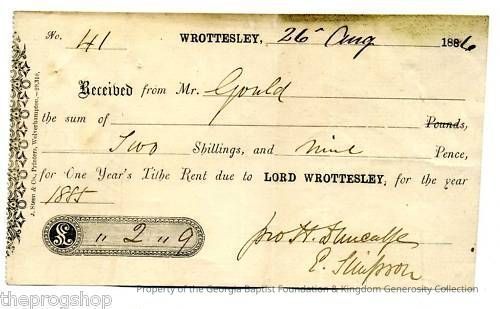 No. 41 WROTTESLEY, 26 Aug 1886
Received from Mr. Gould
the sum of Pounds,
Two Shillings, and nine Pence,
for One Year's Tithe Rent due to LORD WROTTESLEY, for the year
1885
£ " 2 " 9
pro H. Duncalfe
E. Simpson
J. Steen & Co., Printers, Wolverhampton.
theprogshop
Property of the Georgia Baptist Foundation & Kingdom Generosity Collection